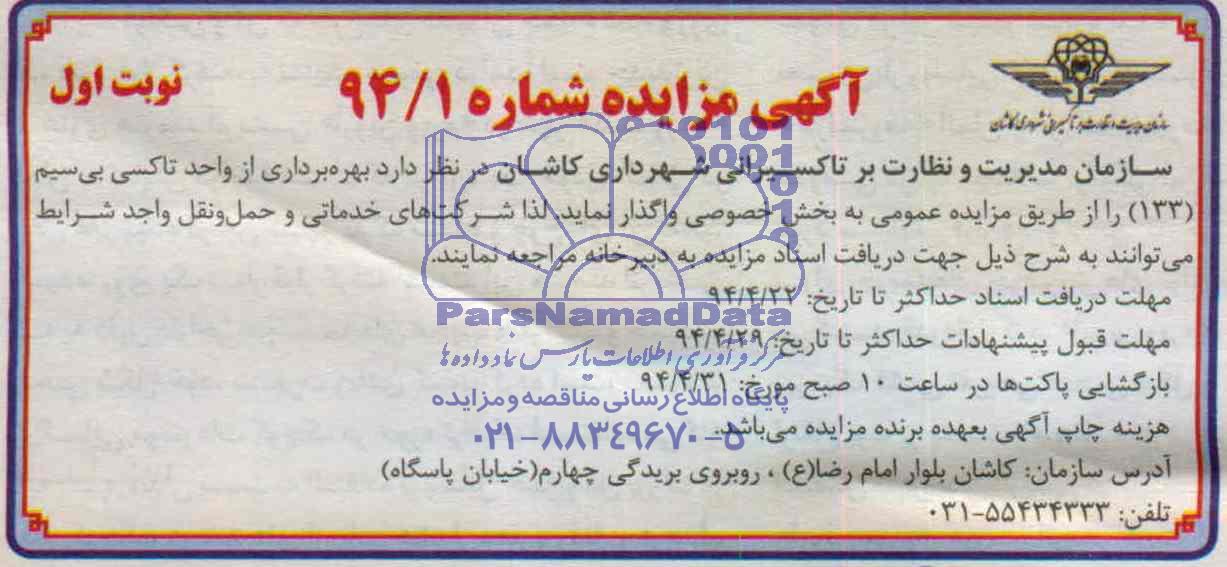 سازمان مدیریت و نظارت بر تاکسیرانی شهرداری کاشان
آگهی مزایده شماره ۹۴/۱
نوبت اول
سازمان مدیریت و نظارت بر تاکسیرانی شهرداری کاشان در نظر دارد بهره‌برداری از واحد تاکسی بی‌سیم
(۱۳۳) را از طریق مزایده عمومی به بخش خصوصی واگذار نماید. لذا شرکت‌های خدماتی و حمل‌ونقل واجد شرایط
می‌توانند به شرح ذیل جهت دریافت اسناد مزایده به دبیرخانه مراجعه نمایند.
مهلت دریافت اسناد حداکثر تا تاریخ: ۹۴/۴/۲۲
مهلت قبول پیشنهادات حداکثر تا تاریخ: ۹۴/۴/۲۹
بازگشایی پاکت‌ها در ساعت ۱۰ صبح مورخ: ۹۴/۴/۳۱
هزینه چاپ آگهی بعهده برنده مزایده می‌باشد.
آدرس سازمان: کاشان بلوار امام رضا(ع) ، روبروی بریدگی چهارم(خیابان پاسگاه)
تلفن: ۵۵۴۳۴۳۳۳-۰۳۱
ParsNamadData
مرکز فرآوری اطلاعات پارس نماد داده‌ها
پایگاه اطلاع رسانی مناقصه و مزایده
۰۲۱-۸۸۳۴۹۶۷۰-۵